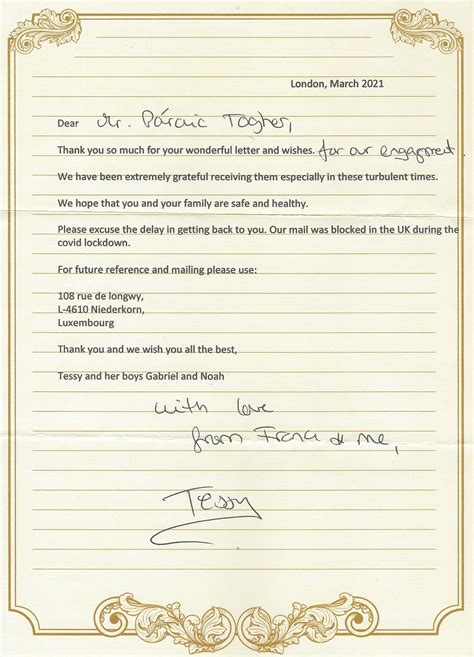 London, March 2021
Dear Mr. Páraic Togher,
Thank you so much for your wonderful letter and wishes. for our engagement.
We have been extremely grateful receiving them especially in these turbulent times.
We hope that you and your family are safe and healthy.
Please excuse the delay in getting back to you. Our mail was blocked in the UK during the
covid lockdown.
For future reference and mailing please use:
108 rue de longwy,
L-4610 Niederkorn,
Luxembourg
Thank you and we wish you all the best,
Tessy and her boys Gabriel and Noah
with love
from Franck & me,
Tessy